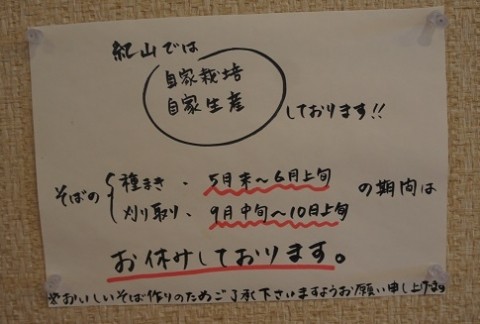 紀山では
自家栽培
自家生産
しております!!
そばの
種まき、5月末〜6月上旬
刈り取り、9月中旬〜10日上旬
の期間は
お休みしております。
※おいしいそば作りのためご了承下さいますようお願い申し上げます